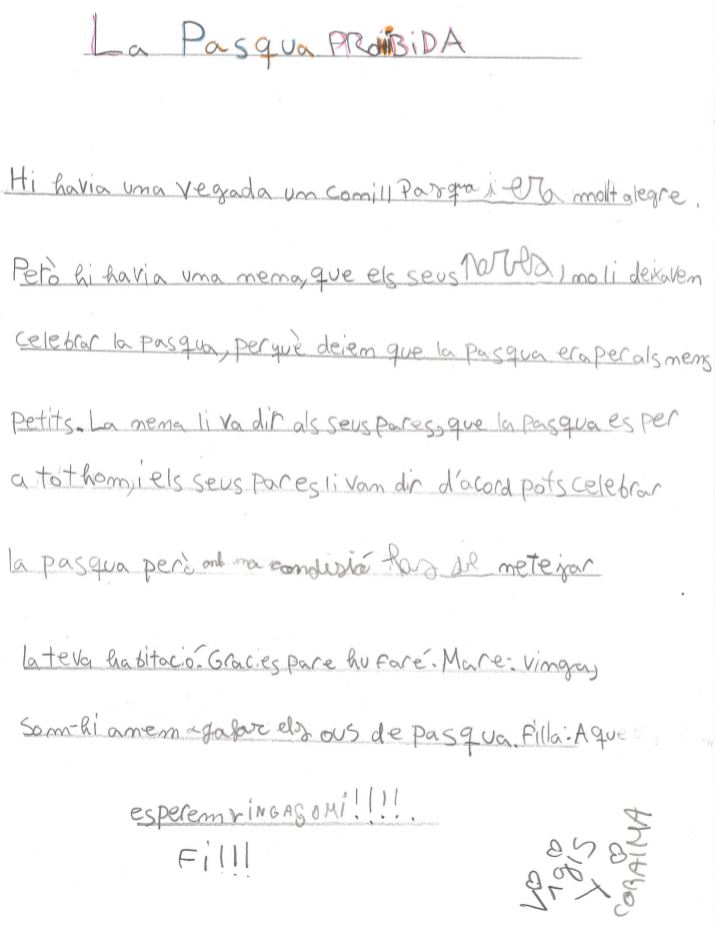 La Pasqua PROiBiDA
Hi havia una vegada un conill Pasqua i era molt alegre.
Però hi havia una nena, que els seus pares, no li deixaven
celebrar la pasqua, perquè deien que la pasqua era per als nens
petits. La nena li va dir als seus pares, que la pasqua es per
a tothom, i els seus pares li van dir d'acord pots celebrar
la pasqua però amb na condisió has de netejar
la teva habitació. Gracies pare hu faré. Mare: vinga,
som-hi anem agafar els ous de pasqua. Filla: A que
esperem vinGA SOMi!!!!!.
Fi!!!
CORAIMA